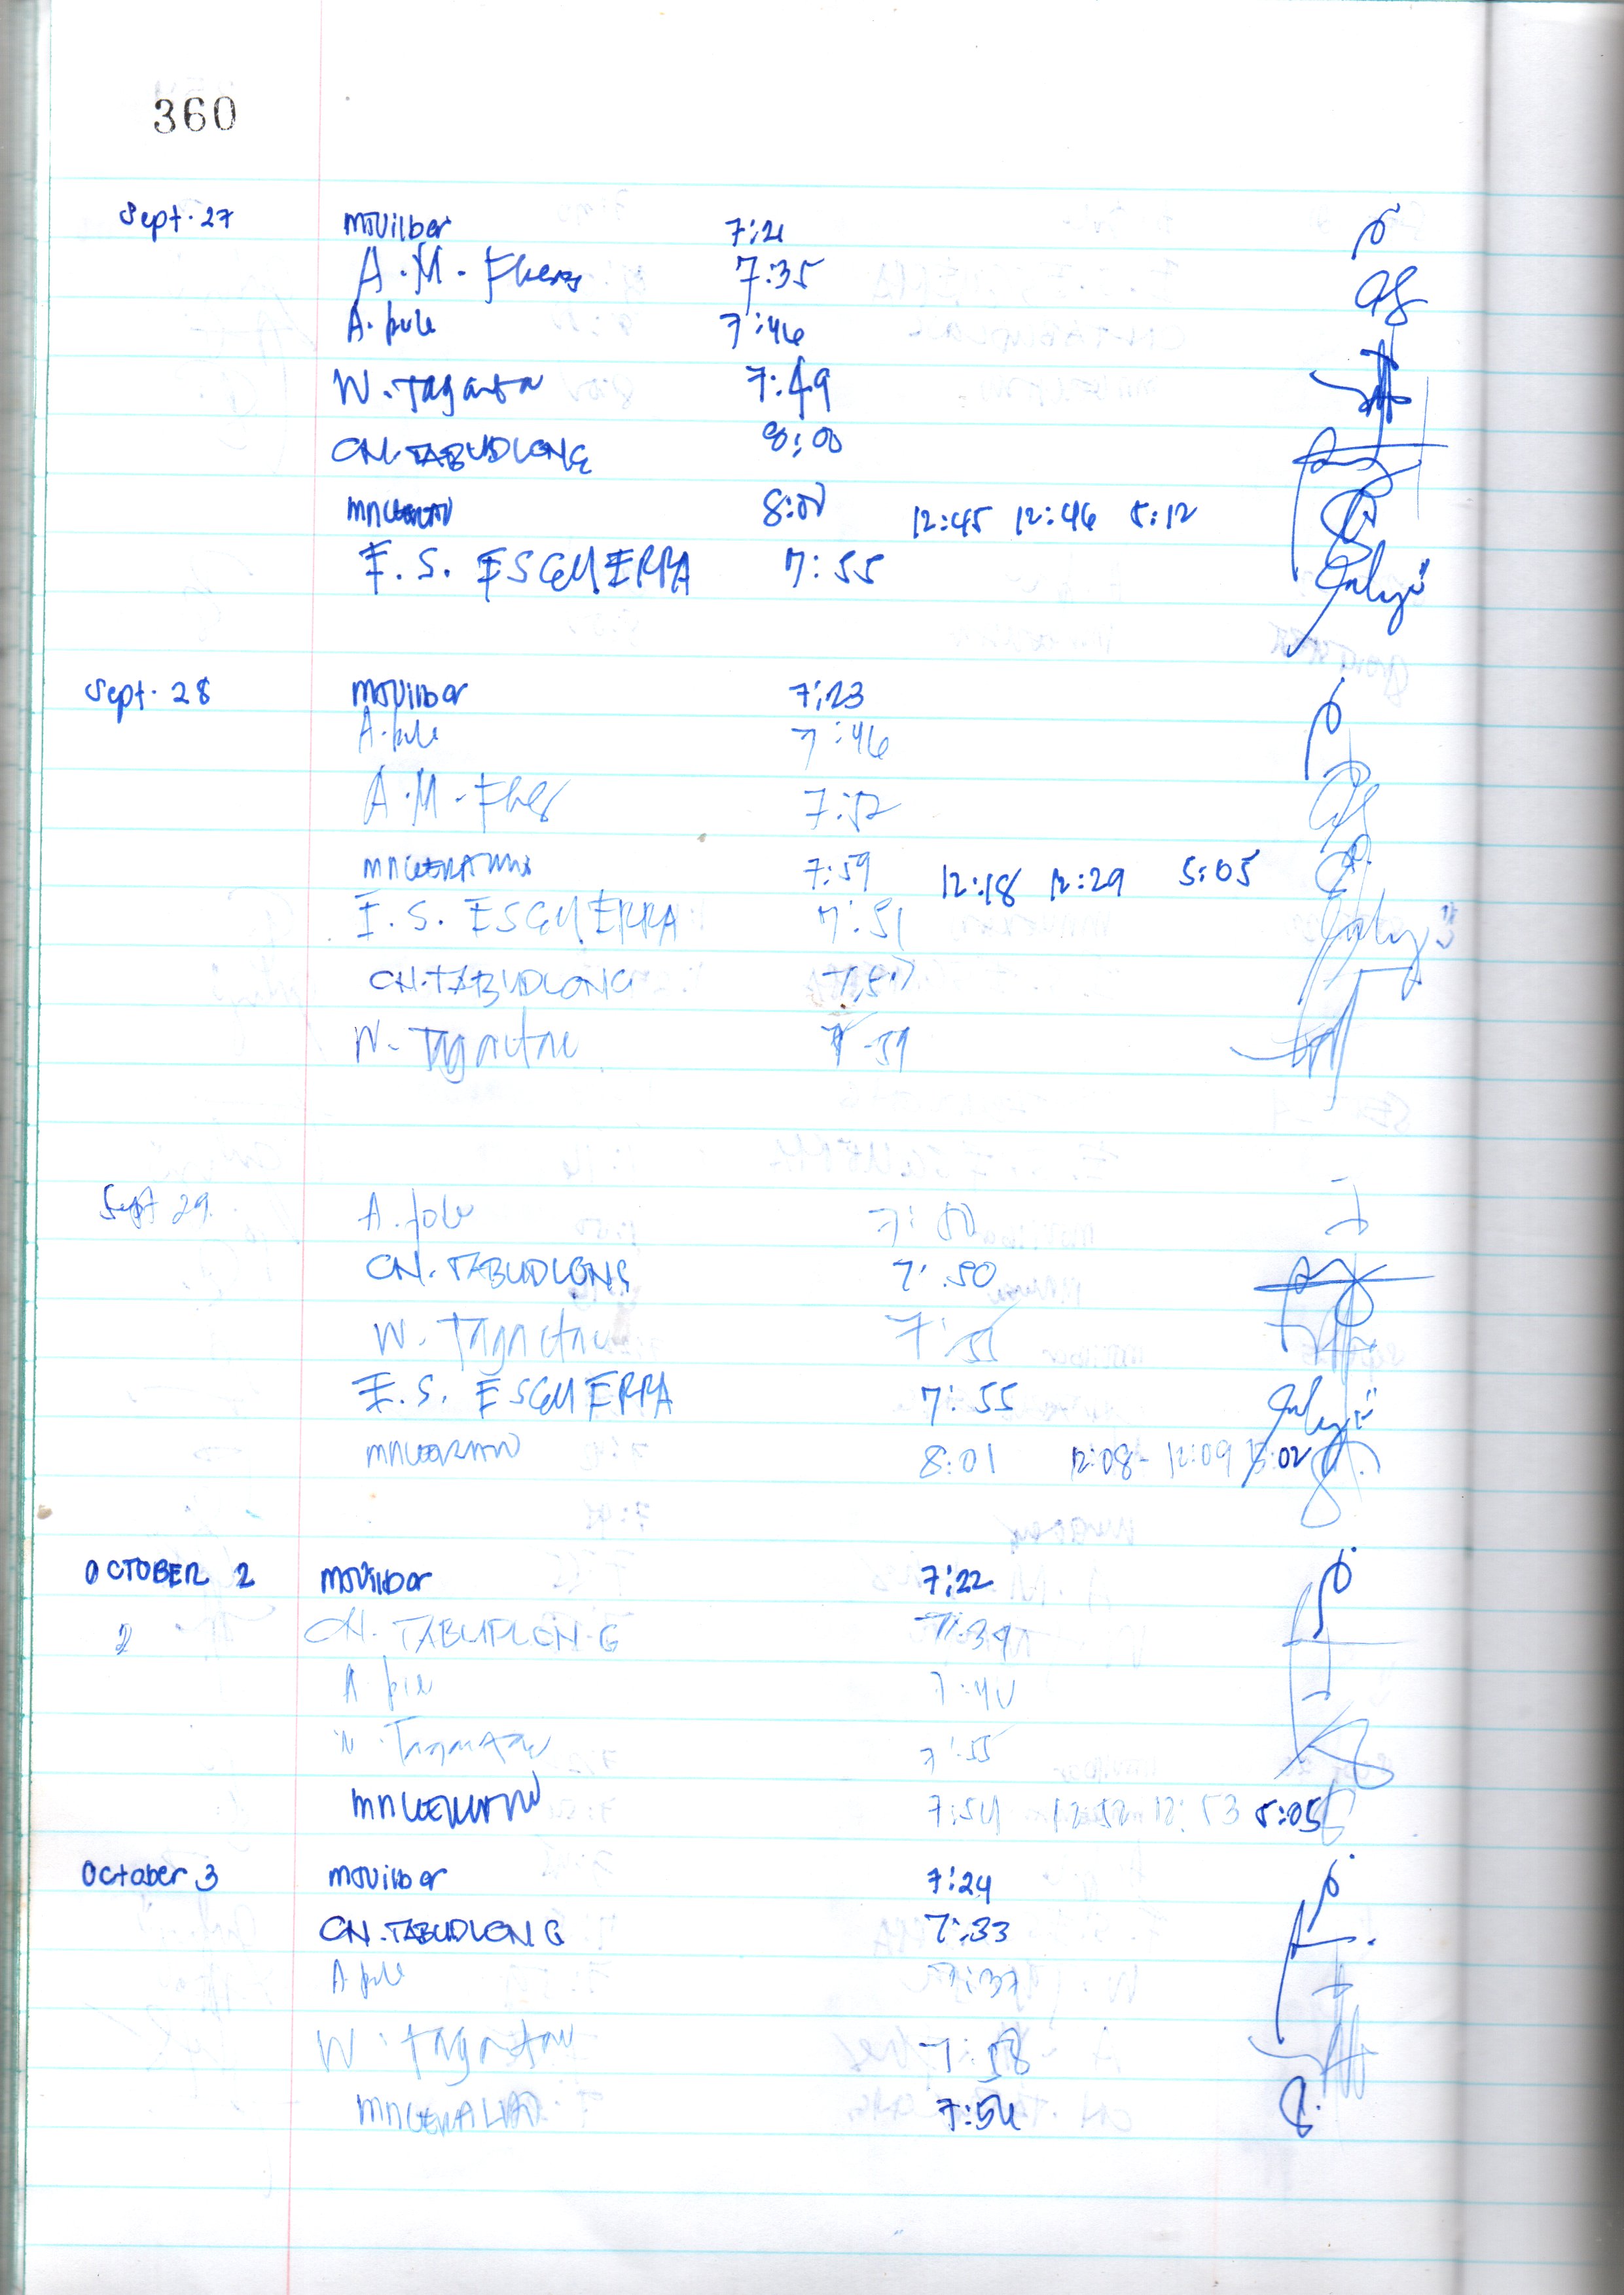 360
Sept. 27 MJVilbar 7:21
A.M. Flores 7:35
A. 7:46
W. Tagactac 7:49
CN.TABUDLONG 8:00
8:01 12:45 12:46 5:12
E.S. ESGUERRA 7:55
Sept. 28 MJVilbar 7:23
A. 7:46
A.M. Flores 7:52
7:59 12:18 12:29 5:05
E.S. ESGUERRA 7:51
CN.TABUDLONG 7:57
W. Tagactac 7:59
Sept 29 A. 7:50
CN. TABUDLONG 7:50
W. Tagactac 7:55
E.S. ESGUERRA 7:55
8:01 12:08 12:09 5:02
OCTOBER 2 MJVilbar 7:22
2 CN. TABUDLONG 7:39
A. 7:40
W. Tagactac 7:55
7:54 12:52 12:53 5:05
October 3 MJVilbar 7:24
CN.TABUDLONG 7:33
A. 7:37
W. Tagactac 7:58
7:54